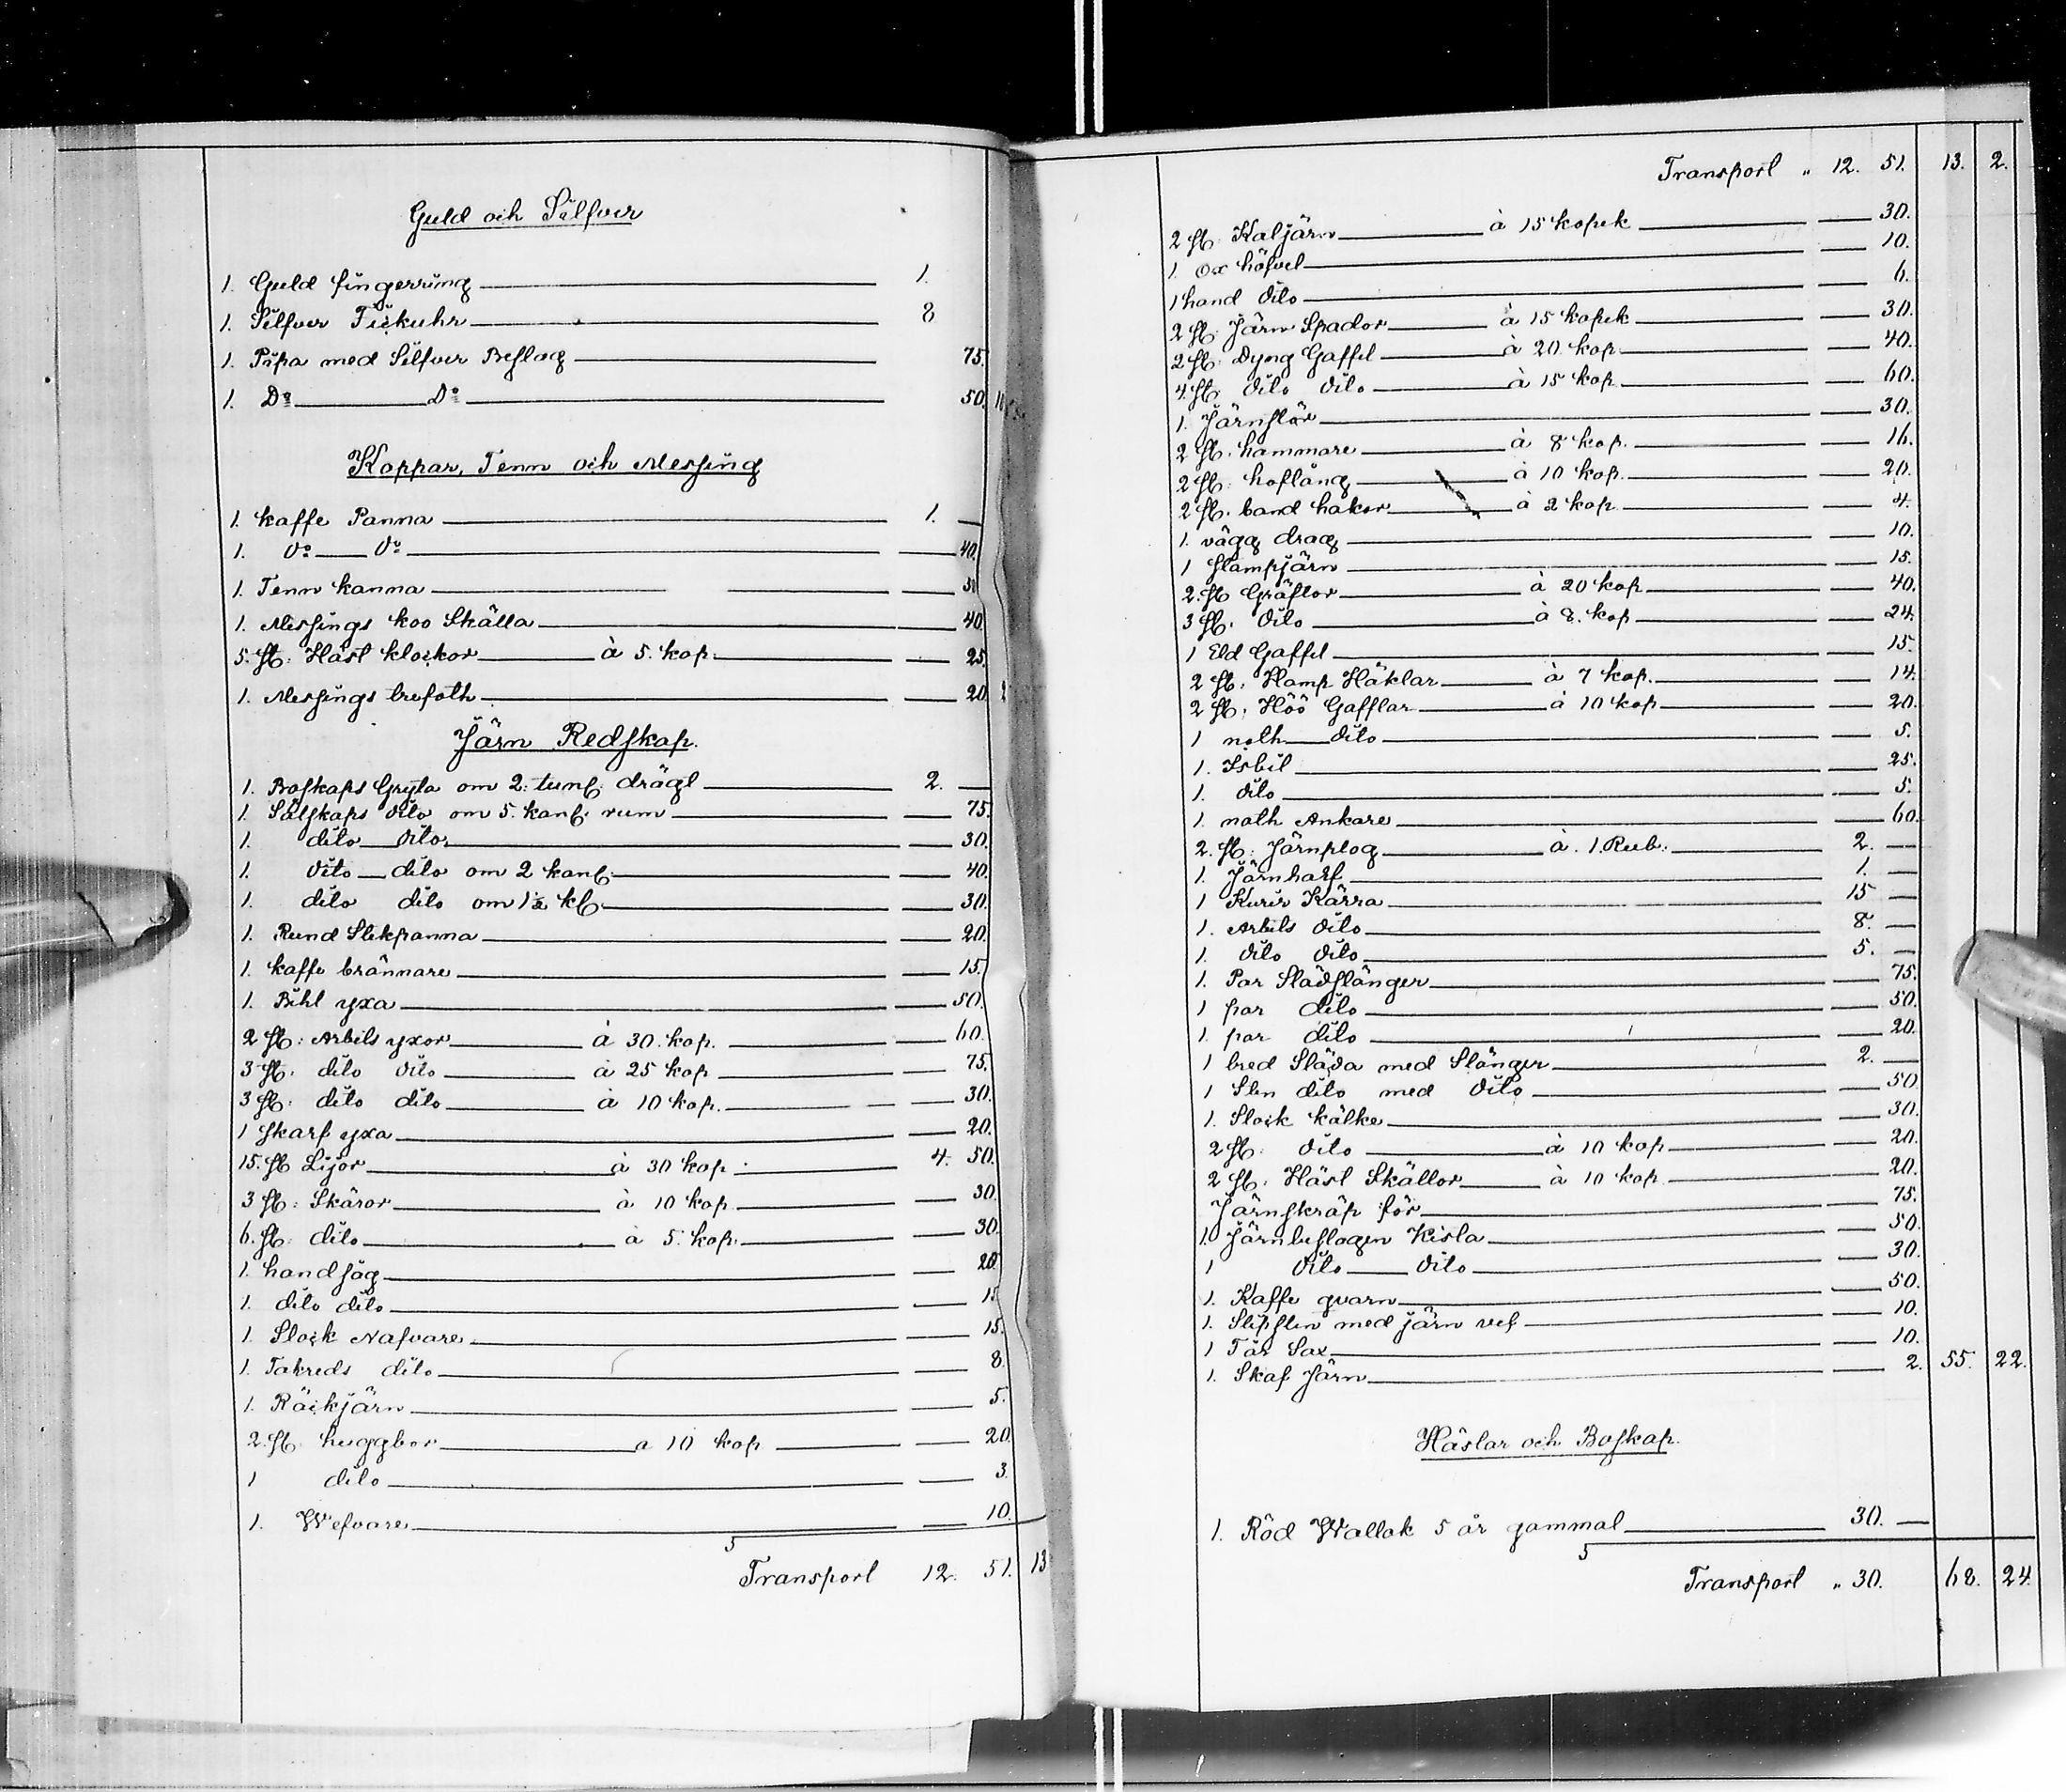 Guld och Silfver
1. Guld fingerring 1.
1. Silfver Fickuhr 8
1. Pipa med Silfver Beslag 75.
1. Do Do 50.
Koppar, Tenn och Messing
1. Kaffe Panna 1. —
1. do do — 40.
1. Tenn kanna —
1. Messings koo Skälla — 40.
5. st: Häst klockor à 5. kop. — 25.
1. Messings trefoth — 20.
Järn Redskap.
1. Boskaps Gryta om 2. tunf: drägt 2. —
1. Sälskaps dito om 5. kanf. rum — 75.
1. dito dito — 30.
1. dito dito om 2 kanf. — 40.
1. dito dito om 1½ kf. — 30.
1. Rund Stekpanna — 20.
1. kaffe brännare — 15.
1. Bihl yxa — 50.
2 st: Arbets yxor à 30. kop. — 60.
3 st. dito dito à 25 kop — 75.
3 st. dito dito à 10 kop. — 30.
1 skarf yxa — 20.
15. st Lijor à 30 kop. 4. 50.
3 st: Skäror à 10 kop — 30.
6. st: dito à 5. kop. — 30.
1. handsåg — 20.
1. dito dito — 15
1. Stock Nafvare — 15.
1. Takreds dito — 8.
1. Räckjärn — 5.
2. st. huggbor a 10 kop — 20.
1 dito — 3.
1. Wefvare — 10.
5
Transport 12. 51. 13
Transport „ 12. 51. 13. 2.
2 st. Kaljärn à 15 kopek — 30.
1. Ox höfvel — 10.
1 hand dito — 6.
2 st. Järn Spador à 15 kopek — 30.
2 st: Dyng Gaffel à 20 kop. — 40.
4. st. dito dito à 15 kop. — 60.
1. Järnstör — 30.
2 st. hammare à 8 kop. — 16.
2 st: hoftång à 10 kop. — 20.
2 st. band hakor à 2 kop. — 4.
1. vägg drag — 10.
1 stampjärn — 15.
2. st Gräftor à 20 kop — 40.
3 st. dito à 8. kop — 24.
1 Eld Gaffel — 15.
2 st. Hamp Häklar à 7 kop. — 14.
2 st. Höö Gafflar à 10 kop — 20.
1 noth dito — 5.
1. Isbil — 25.
1. dito — 5.
1. noth Ankare — 60.
2. st: Järnplog à. 1. Rub. 2. —
1. Järnharf 1. —
1 Kurir Kärra 15 —
1. Arbets dito 8. —
1. dito dito 5. —
1. Par Slädstänger — 75.
1 par dito — 50.
1. par dito — 20.
1 bred Släda med Stänger 2. —
1 Sten dito med dito — 50.
1. Stock kälke — 30.
2 st: dito à 10 kop — 20.
2 st. Häst Skällor à 10 kop. — 20.
Järnskräp för — 75.
1. Järnbeslagen Kista — 50.
1 dito dito — 30.
1. Kaffe qvarn — 50.
1. Slipsten med järn vef — 10.
1 Får Sax — 10.
1. Skaf Järn — 2. 55. 22.
Hästar och Boskap.
1. Röd Wallak 5 år gammal 30. —
5
Transport „ 30. 68. 24.